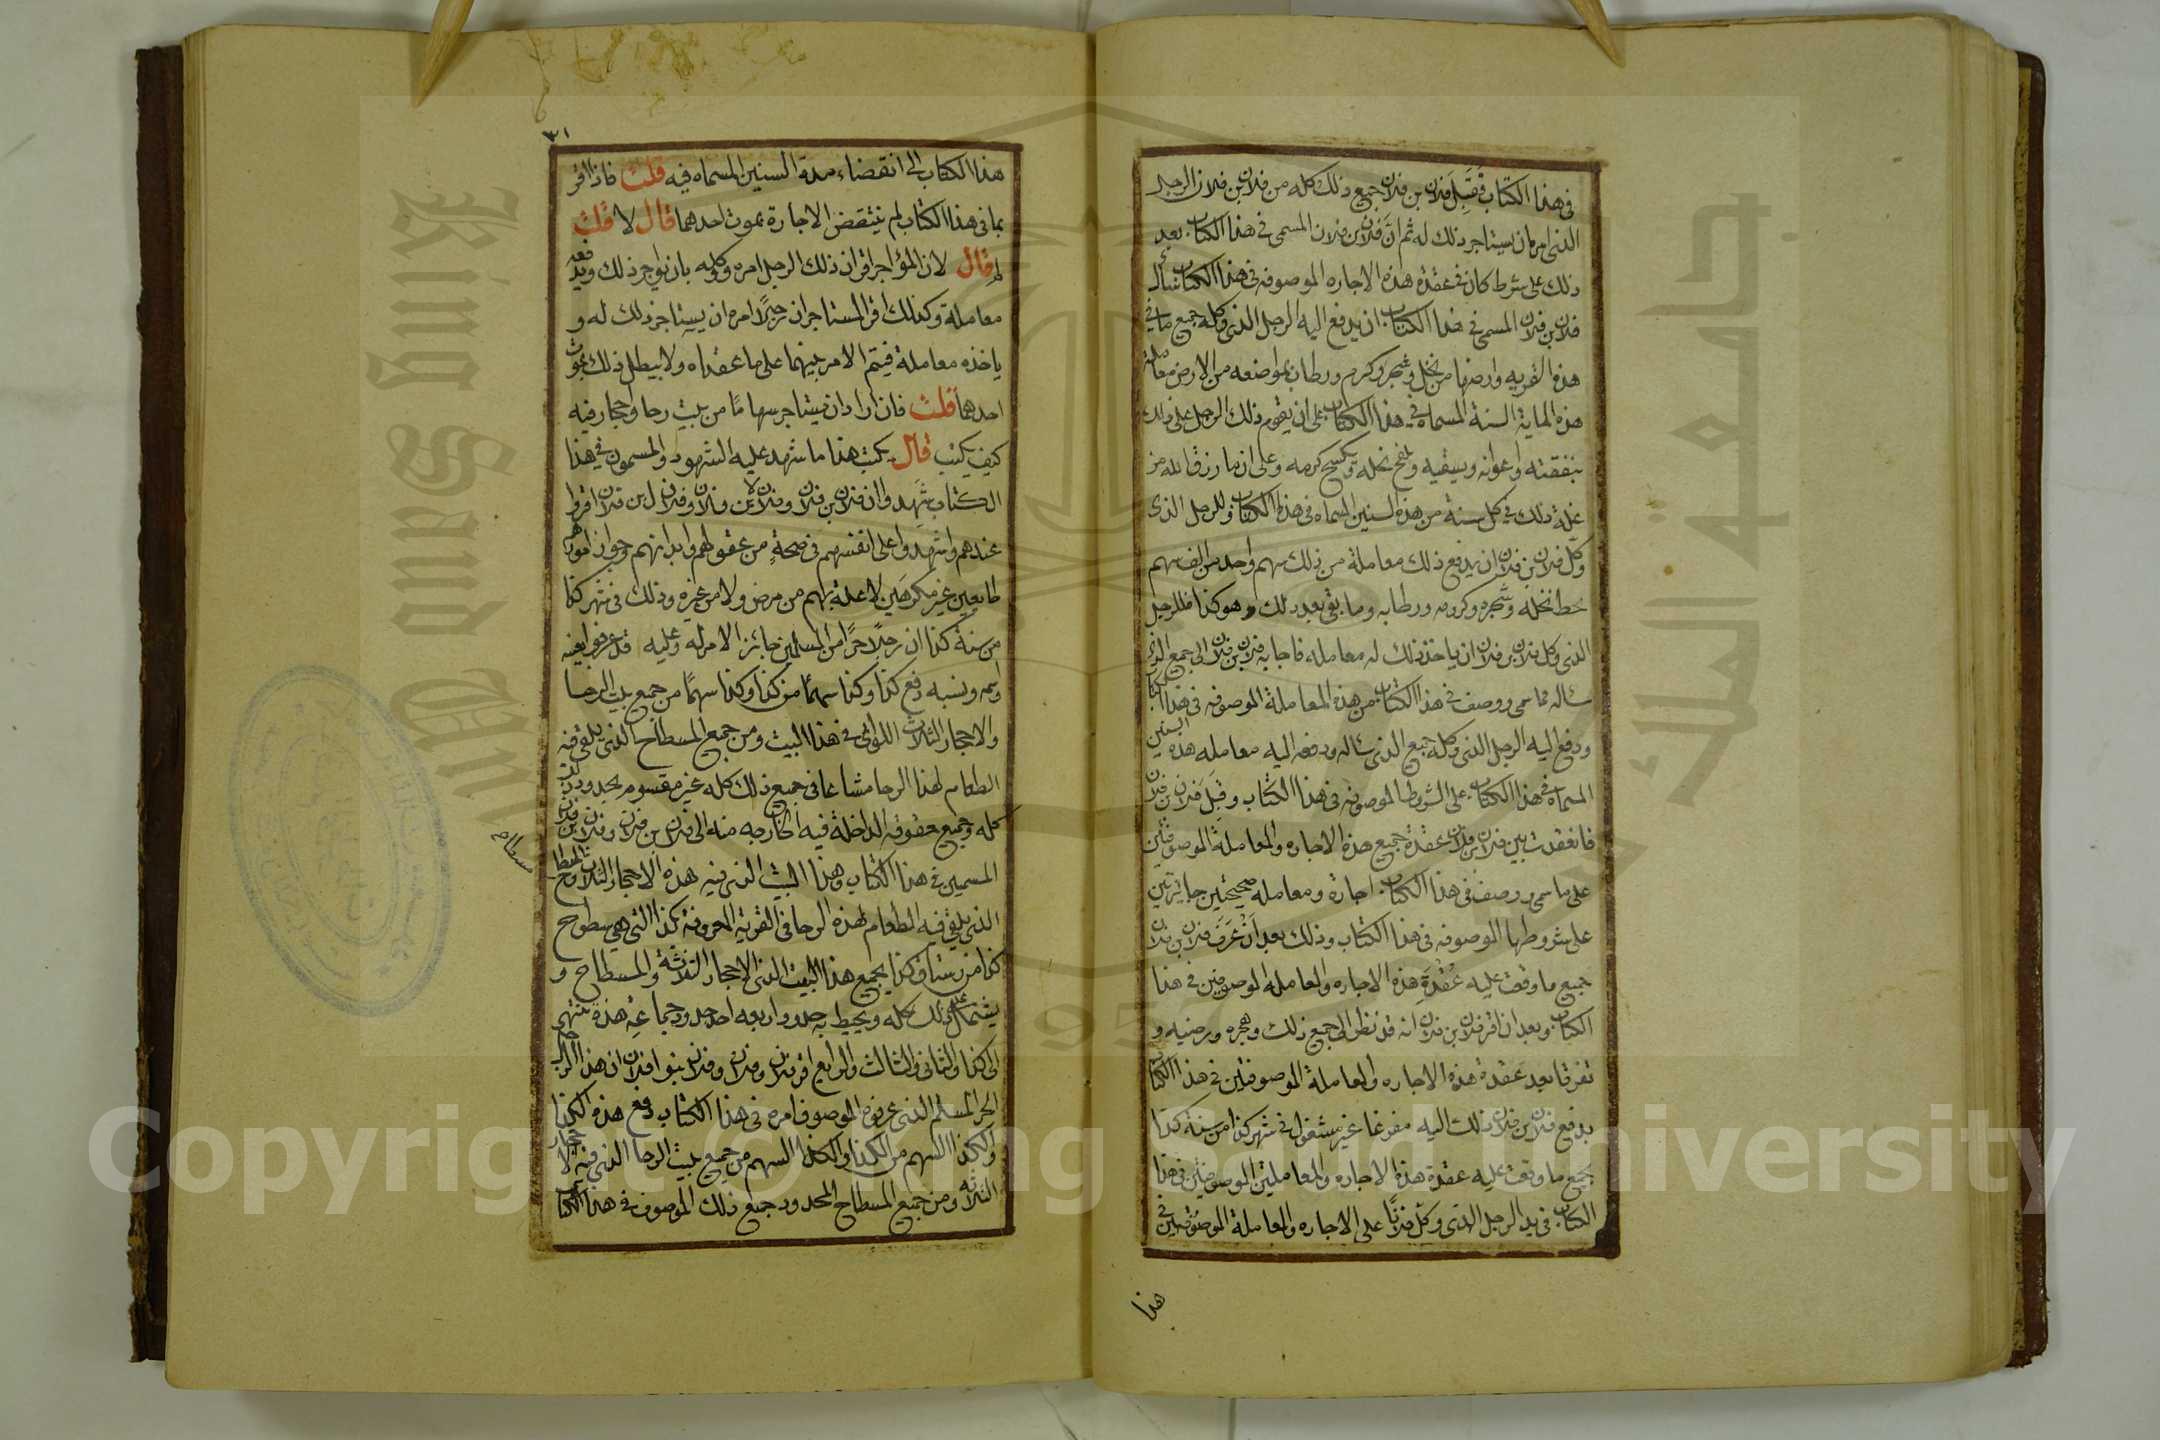 في هذا الكتاب فقبل فلان بن فلان جميع ذلك كله من فلان بن فلان الرجل
الذى امره ان يستاجر ذلك له ثم ان فلان بن فلان المسمى في هذا الكتاب بعد
ذلك على شرط كان في عقدة هذه الاجاره الموصوفه في هذا الكتاب سال
فلان بن فلان المسمى في هذا الكتاب ان يدفع اليه الرجل الذى وكله جميع ما في
هذه القريه وارضها من نخل وشجر وكرم ورطاب بمواضعه من الارض معاملة
هذه الماية السنة المسماه في هذا الكتاب على ان يقوم ذلك الرجل على ذلك
بنفقته واعوانه ويسقيه ويلقح نخله ويكسح كرمه وعلى ان ما رزق الله من
غلة ذلك في كل سنة من هذه السنين المسماه في هذا الكتاب فللرجل الذى
وكل فلان بن فلان ان يدفع ذلك معاملة من ذلك سهم واحد من الف سهم
نخله وشجره وكرمه ورطابه وما بقى بعد ذلك وهو كذا فللرجل
الذى وكل فلان بن فلان ان ياخذ ذلك له معامله فاجابه فلان بن فلان الى جميع الذى
ساله مما سمى ووصف في هذا الكتاب من هذه المعاملة الموصوفه في هذا الكتاب
ودفع اليه الرجل الذى وكله جميع الذى ساله ودفعه اليه معامله هذه السنين
المسماه في هذا الكتاب على الشروط الموصوفه في هذا الكتاب وقبل فلان بن فلان
فانعقدت بين فلان بن فلان عقدة جميع هذه الاجاره والمعاملة الموصوفتين
على ما سمى ووصف في هذا الكتاب اجارة ومعامله صحيحتين جايزتين
على شروطها الموصوفه في هذا الكتاب وذلك بعد ان عرف فلان بن فلان
جميع ما وقعت عليه عقدة هذه الاجاره والمعامله الموصوفتين في هذا
الكتاب وبعد ان اقر فلان بن فلان انه قد نظر الى جميع ذلك ورضيه و
تفرقا بعد عقدة هذه الاجاره والمعاملة الموصوفتين في هذا الكتاب
بدفع فلان بن فلان ذلك اليه مفرغا غير مشغول في شهر كذا من سنة كذا
جميع ما وقعت عليه عقدة هذه الاجاره والمعاملتين الموصوفتين في هذا
الكتاب في يد الرجل الذى وكل فلانًا على الاجاره والمعاملة الموصوفتين في
هذا
٣١
هذا الكتاب الى انقضاء مدة السنين المسماه فيه قلت فاذا اقر
بما في هذا الكتاب لم ينتقض الاجارة بموت احدهما قال لا قلت
لم قال لان المؤاجر اقر ان ذلك الرجل امره وكله بان يؤاجر ذلك ويدفعه
معاملة وكذلك اقر المستاجر ان رجلًا امره ان يستاجر ذلك له و
ياخذه معاملة فيتم الامر بينهما على ما عقداه ولا يبطل ذلك بموت
احدهما قلت فان اراد ان يستاجر سهاما من بيت رحا واحجار فيه
كيف يكتب قال يكتب هذا ما شهد عليه الشهود والمسمون في هذا
الكتاب شهدوا ان فلان بن فلان وفلان بن فلان وفلان بن فلان اقروا
عندهم واشهدوا على انفسهم في صحةٍ من عقولهم وابدانهم وجواز امورهم
طايعين غير مكرهين لا علة بهم من مرض ولا من غيره وذلك في شهر كذا
من سنة كذا ان رجلًا حرًا من المسلمين جائز الامر له وعليه قد عرفوا بعينه
واسمه ونسبه دفع كذا وكذا سهمًا من كذا وكذا سهمًا من جميع بيت الرحا
والاحجار الثلاث اللواتى في هذا البيت ومن جميع المسطاح الذى يلقى فيه
الطعام لهذا الرحا مشاعا في جميع ذلك كله غير مقسوم بحدود ذلك
كله وجميع حقوقه الداخلة فيه الخارجه منه الى فلان بن فلان وفلان بن فلان
المسمين في هذا الكتاب وهذا البيت الذى فيه هذه الاحجار الثلاث والمسطاح
مسطاح
الذى يلقى فيه الطعام لهذه الرحا في القرية المعروفة بكذا التى هى بسطوح
كذا من رستاق كذا بجميع هذا البيت الذى الاحجار الثلاثة والمسطاح و
يشتمل على ذلك كله ويحيط به حدود اربعه احد حدود جماعة هذه ينتهى
الى كذا والثانى والثالث والرابع اقر فلان وفلان وفلان بنوا فلان ان هذا الرجل
الحر المسلم الذى عرفوه الموصوف امره في هذا الكتاب دفع هذه الكذا
والكذا السهم من الكذا والكذا السهم من جميع بيت الرحا الذى فيه الاحجار
الثلاثه ومن جميع المسطاح المحدود جميع ذلك الموصوف في هذا الكتاب
Copyright © King Saud University
King Saud University
جامعة الملك سعود
1957